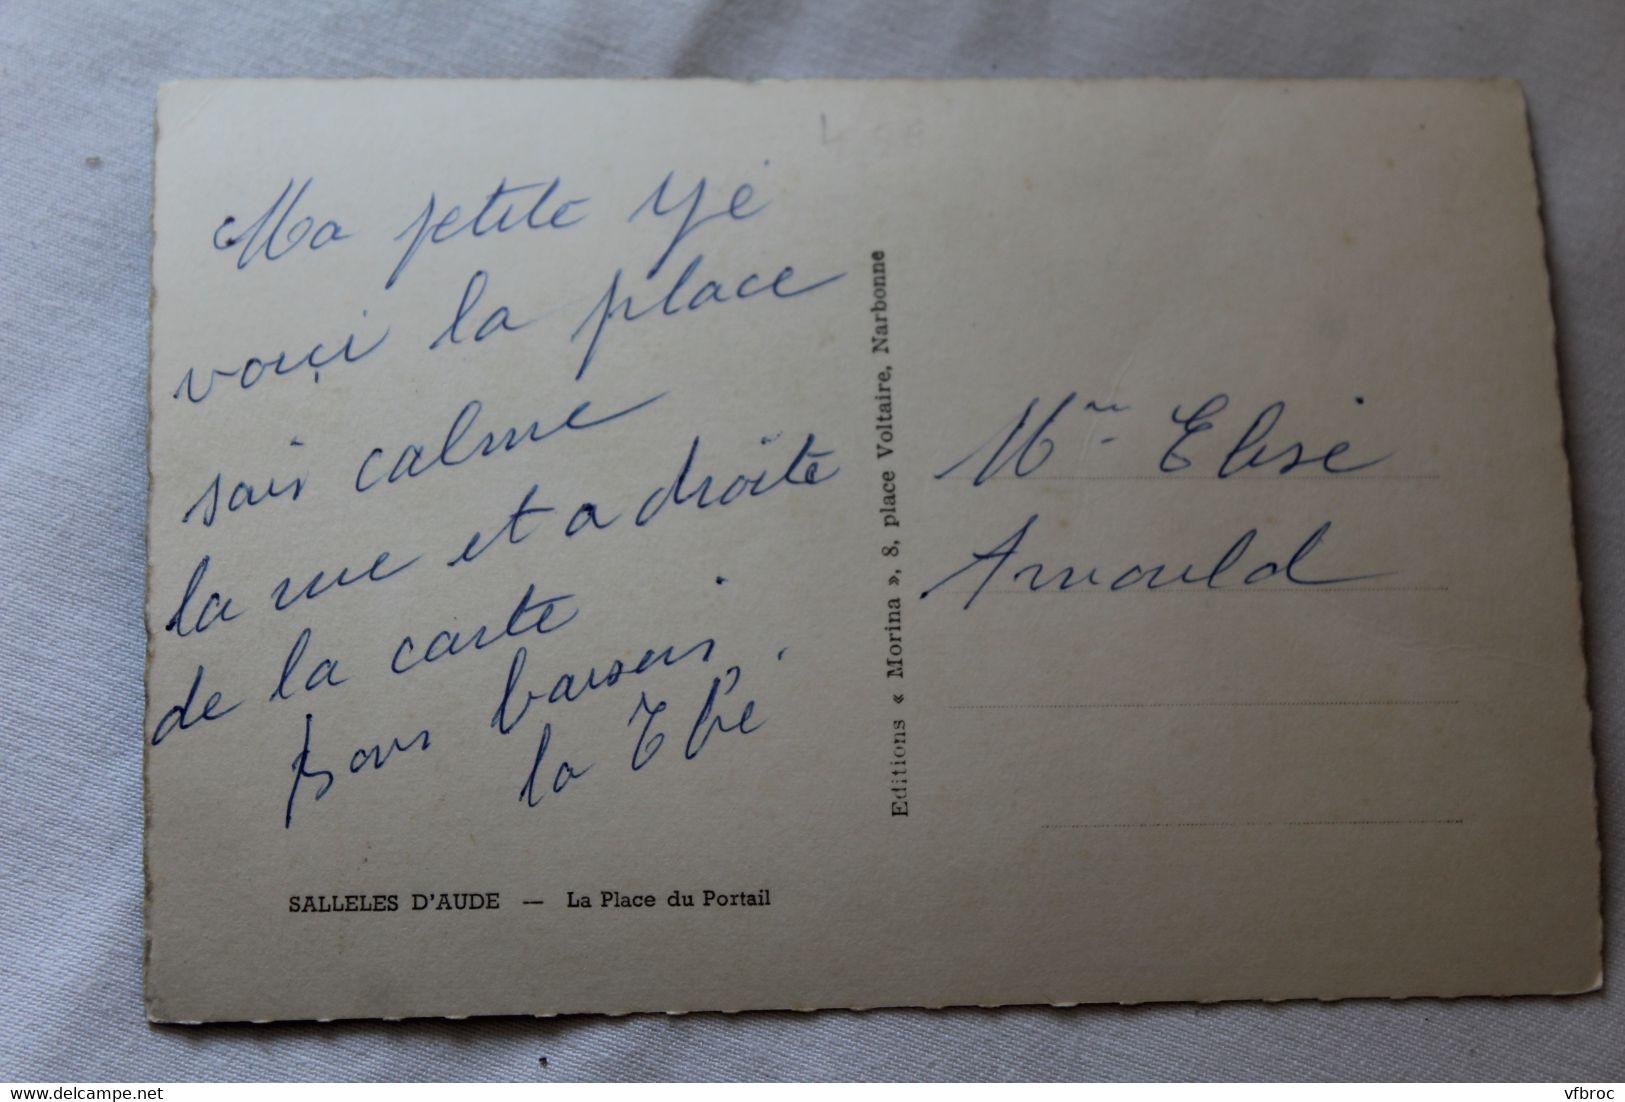 Ma petite yé
voiçi la place
sais calme
la rue et a droite
de la carte.
bons baisers.
la
SALLELES D'AUDE — La Place du Portail
Editions « Morina », 8, place Voltaire, Narbonne
Elise
Arnould
delcampe.net
vfbroc